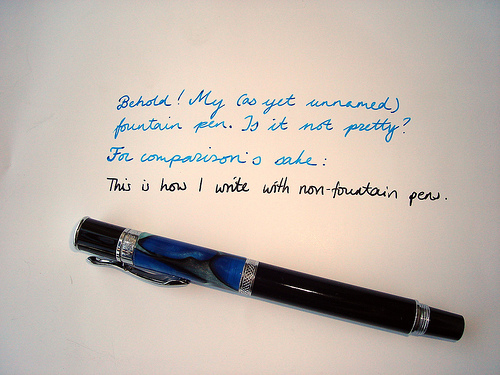 Behold! My (as yet unnamed)
fountain pen. Is it not pretty?
For comparison's sake:
This is how I write with non-fountain pens.